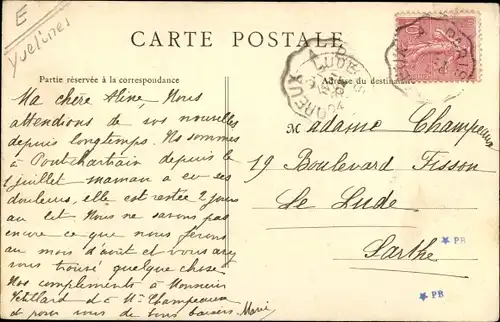 E
Yvelines
CARTE POSTALE
Partie réservée à la correspondance
Adresse du destinataire
Ma chère Aline, Nous
attendions de vos nouvelles
depuis longtemps. Ns sommes
à Pontchartrain depuis le
1 juillet maman a eu ses
douleurs, elle est restée 2 jours
au lit Nous ne savons pas
encore ce que nous ferons
au mois d'août et vous avez
vous trouvé quelque chose
Nos compliments à Monsieur
et à Me Champeaux
et pour vous de bons baisers Marie
Madame Champeaux
19 Boulevard Fisson
Le Lude
Sarthe
PB
PB